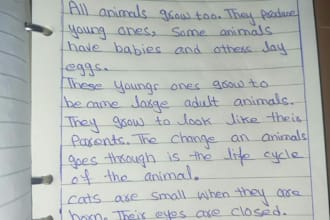 All animals grow too. They produce
young ones, Some animals
have babies and others lay
eggs.
These youngr ones grow to
became large adult animals.
They grow to look like their
Parents. The change an animals
goes through is the life cycle
of the animal.
cats are small when they are
born. Their eyes are closed.